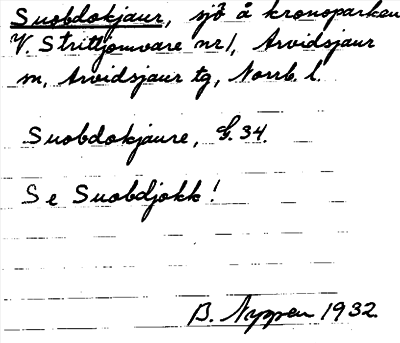 Suobdokjaur, sjö å kronoparken
V. Strittjomvare nr 1, Arvidsjaur
sn, Arvidsjaur tg, Norrb. l.
Suobdokjaure, G. 34.
Se Suobdjokk!
B. Nyppen 1932